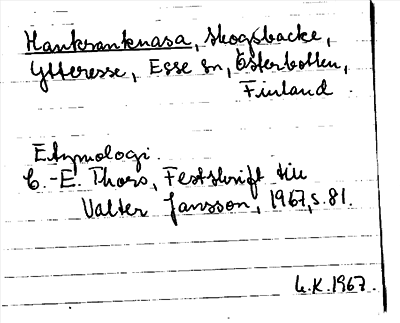 Hankranknasa, skogsbacke,
Ytteresse, Esse sn, Österbotten,
Finland.
Etymologi.
C.-E. Thors, Festskrift till
Valter Jansson, 1967, s. 81.
L.K. 1967.